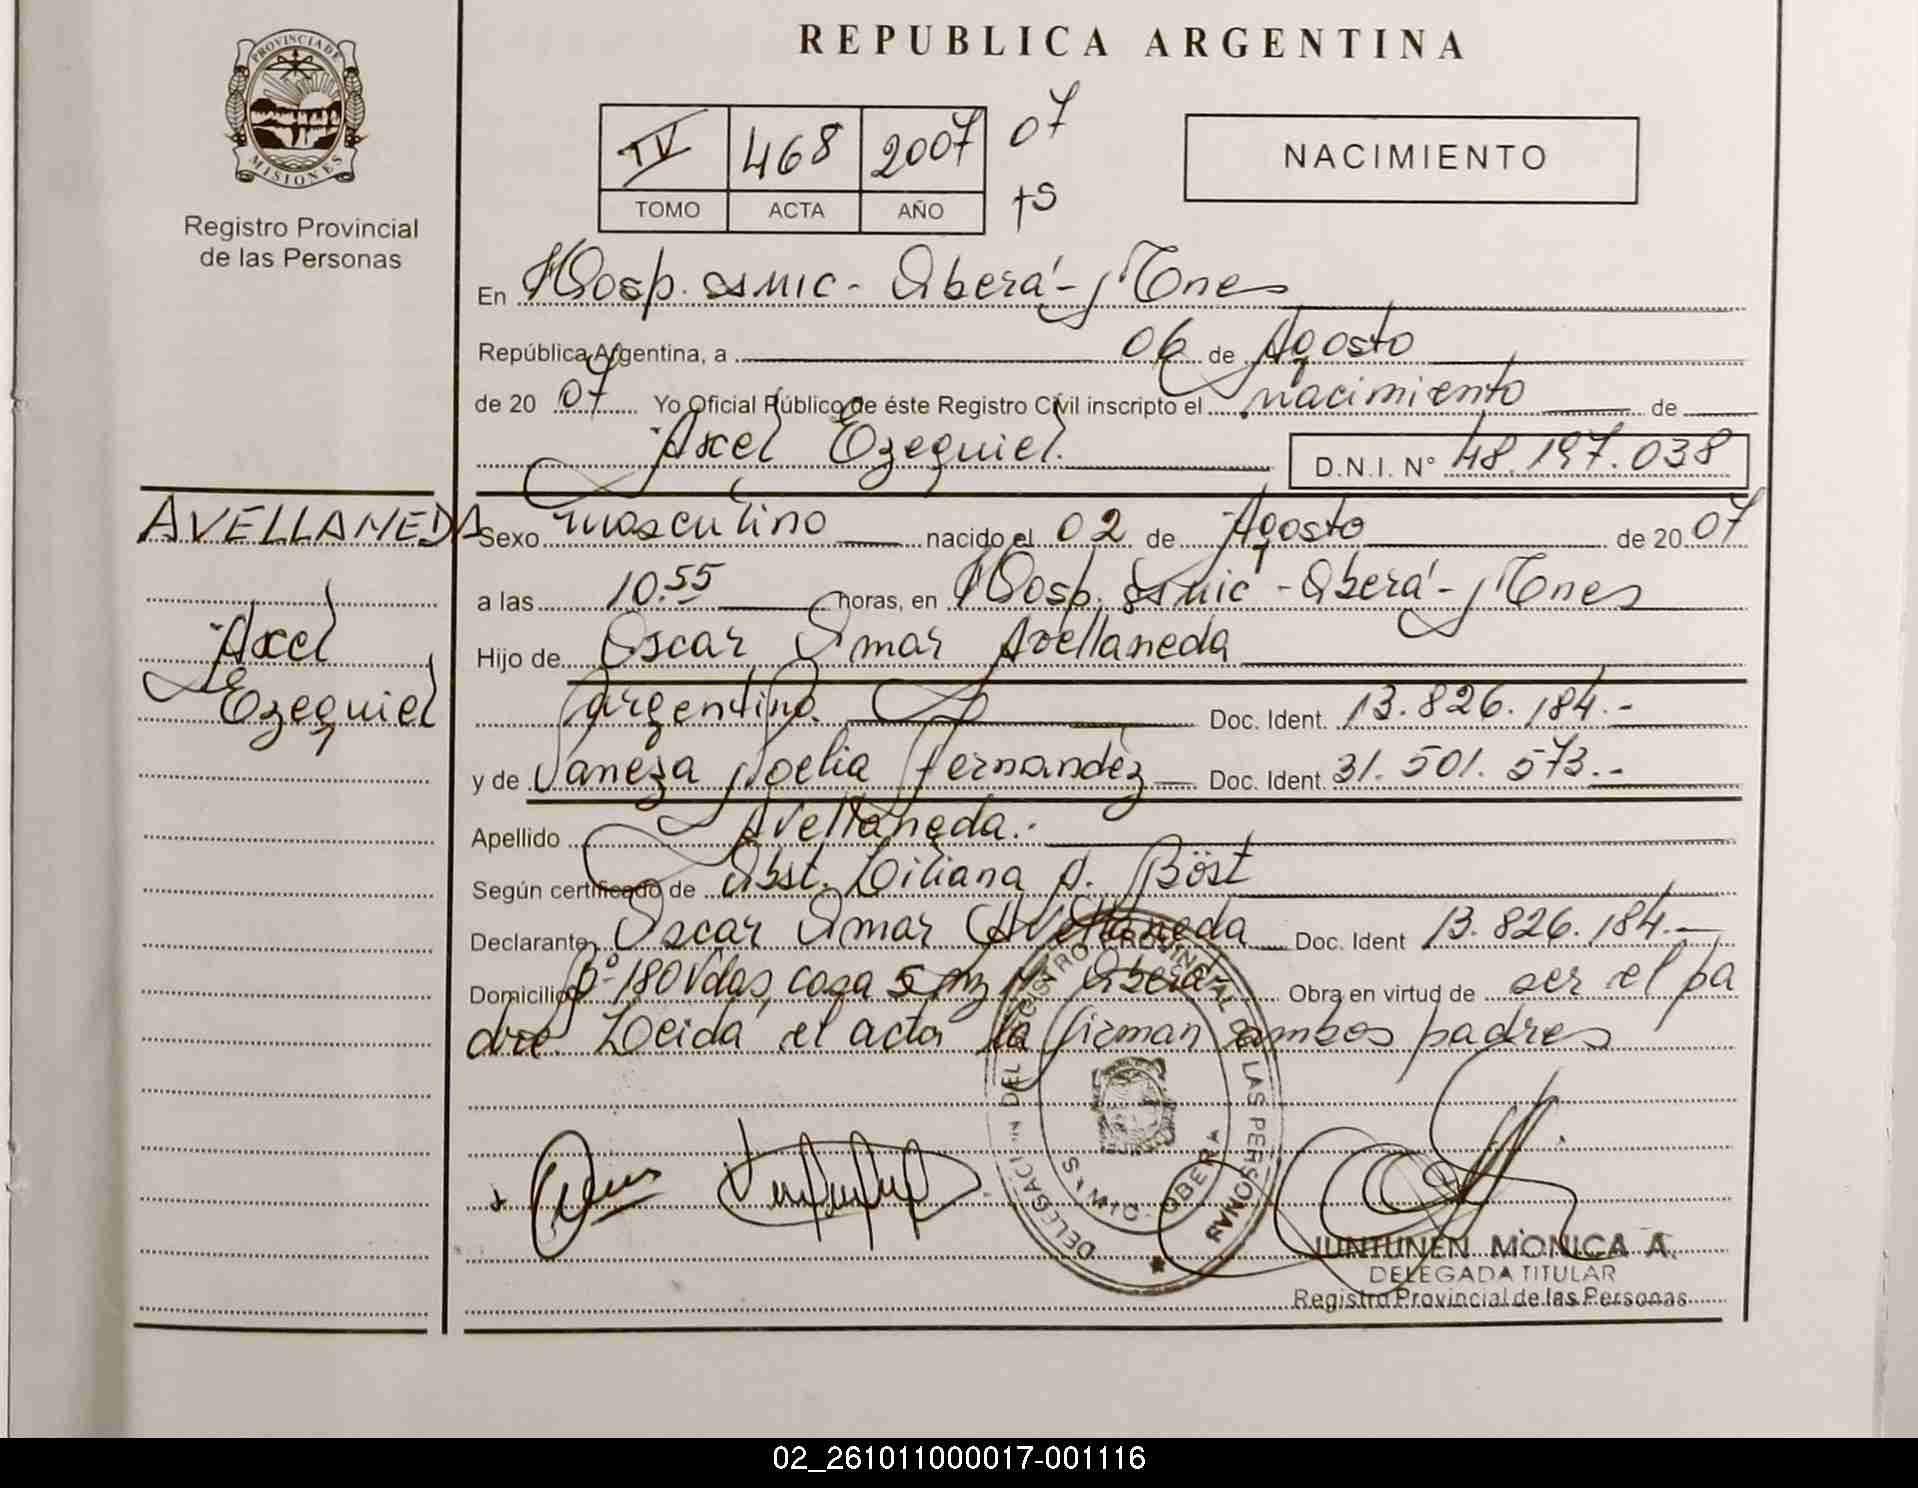 REPUBLICA ARGENTINA
PROVINCIA DE
MISIONES
Registro Provincial
de las Personas
IV 468 2007 07
TOMO ACTA AÑO
NACIMIENTO
En Hosp. SAMIC - Oberá - Mnes
República Argentina, a 06 de Agosto
de 20 07 Yo Oficial Público de éste Registro Civil inscripto el nacimiento de
Axel Ezequiel. D.N.I. N° 48.197.038
AVELLANEDA
Axel
Ezequiel
Sexo masculino nacido el 02 de Agosto de 20 07
a las 10.55 horas, en Hosp. SAMIC - Oberá - Mnes
Hijo de Oscar Omar Avellaneda
argentino. Doc. Ident. 13.826.184.-
y de Vaneza Noelia Fernandez Doc. Ident. 31.501.573.-
Apellido Avellaneda.-
Según certificado de Obst. Liliana A. Böst
Declarante Oscar Omar Avellaneda Doc. Ident 13.826.184.-
Domicilio B° 180 Vdas, casa 5 mz Oberá Obra en virtud de ser el pa
dre. Leida el acta la firman ambos padres
DELEGACI DEL REGISTRO PROVINCIAL DE LAS PERSONAS
OBERA
JUNTUNEN MONICA A.
DELEGADA TITULAR
Registro Provincial de las Personas
02_261011000017-001116